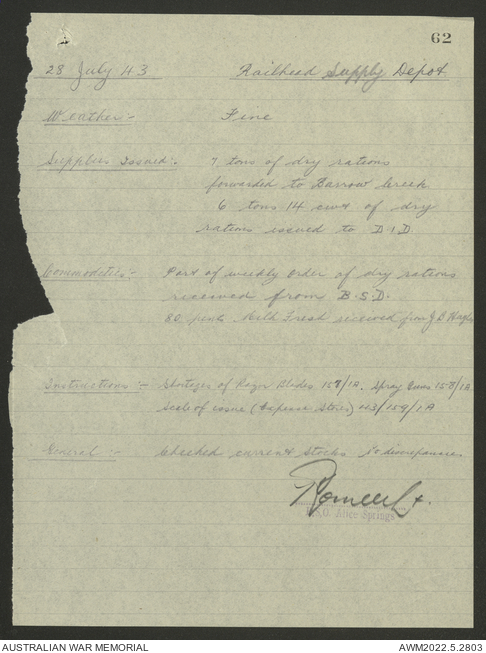 62
28 July 43 Railhead Supply Depot
Weather:- Fine
Supplies Issued:- 7 tons of dry rations
forwarded to Barrow Creek
6 tons 14 cwt of dry
rations issued to D.I.D.
Commodities:- Part of weekly order of dry rations
received from B.S.D.
80 pints Milk Fresh received from J B
Instructions:- Shortages of Razor Blades 157/1A. Spray Guns 158/1A
Scale of issue (Expense Stores) 43/159/1A
General:- Checked current stocks No discrepancies
Alice Springs
AUSTRALIAN WAR MEMORIAL AWM2022.5.2803